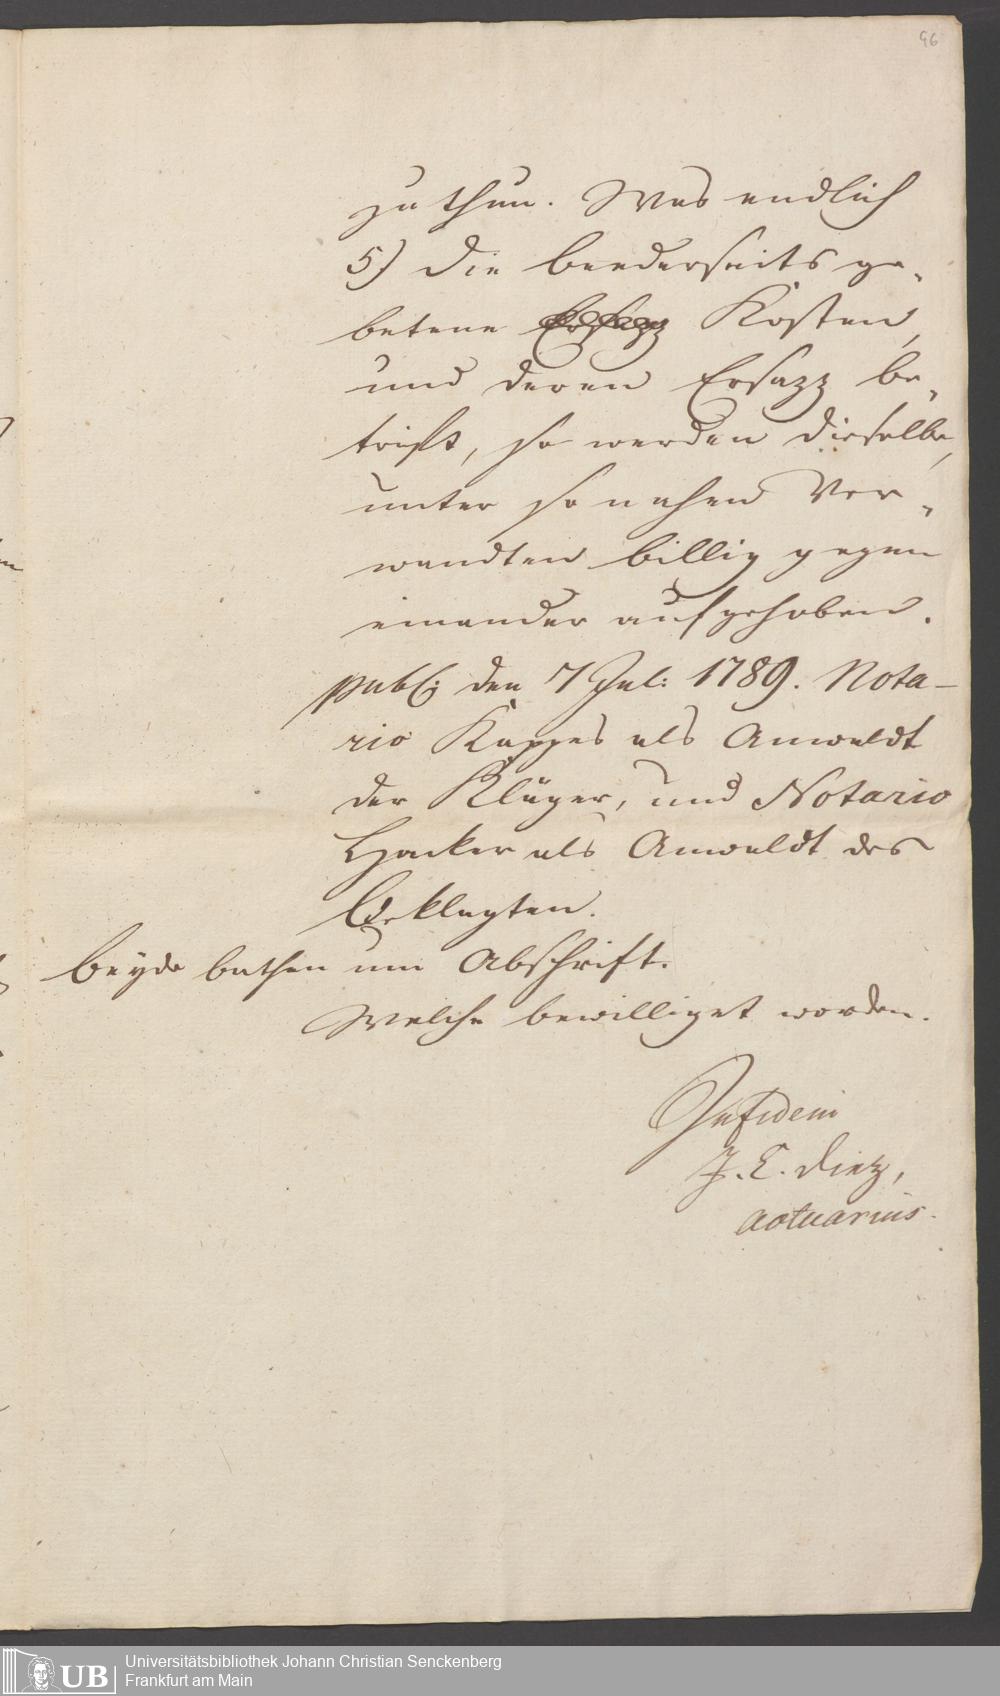 96
zu thun. Was endlich
5) die beederseits ge-
betene Ersazz Kosten,
und deren Ersazz be-
trift, so werden dieselbe,
unter so nahen Ver-
wandten billig gegen
einander aufgehoben.
publ: den 7 Jul: 1789. Nota-
rio Kappes als Anwaldt
der Kläger, und Notario
Hacker als Anwaldt des
Beklagten.
Beyde bathen um Abschrift.
Welche bewilliget worden.
In fidem
J. C. Dietz,
actuarius.
UB Universitätsbibliothek Johann Christian Senckenberg
Frankfurt am Main